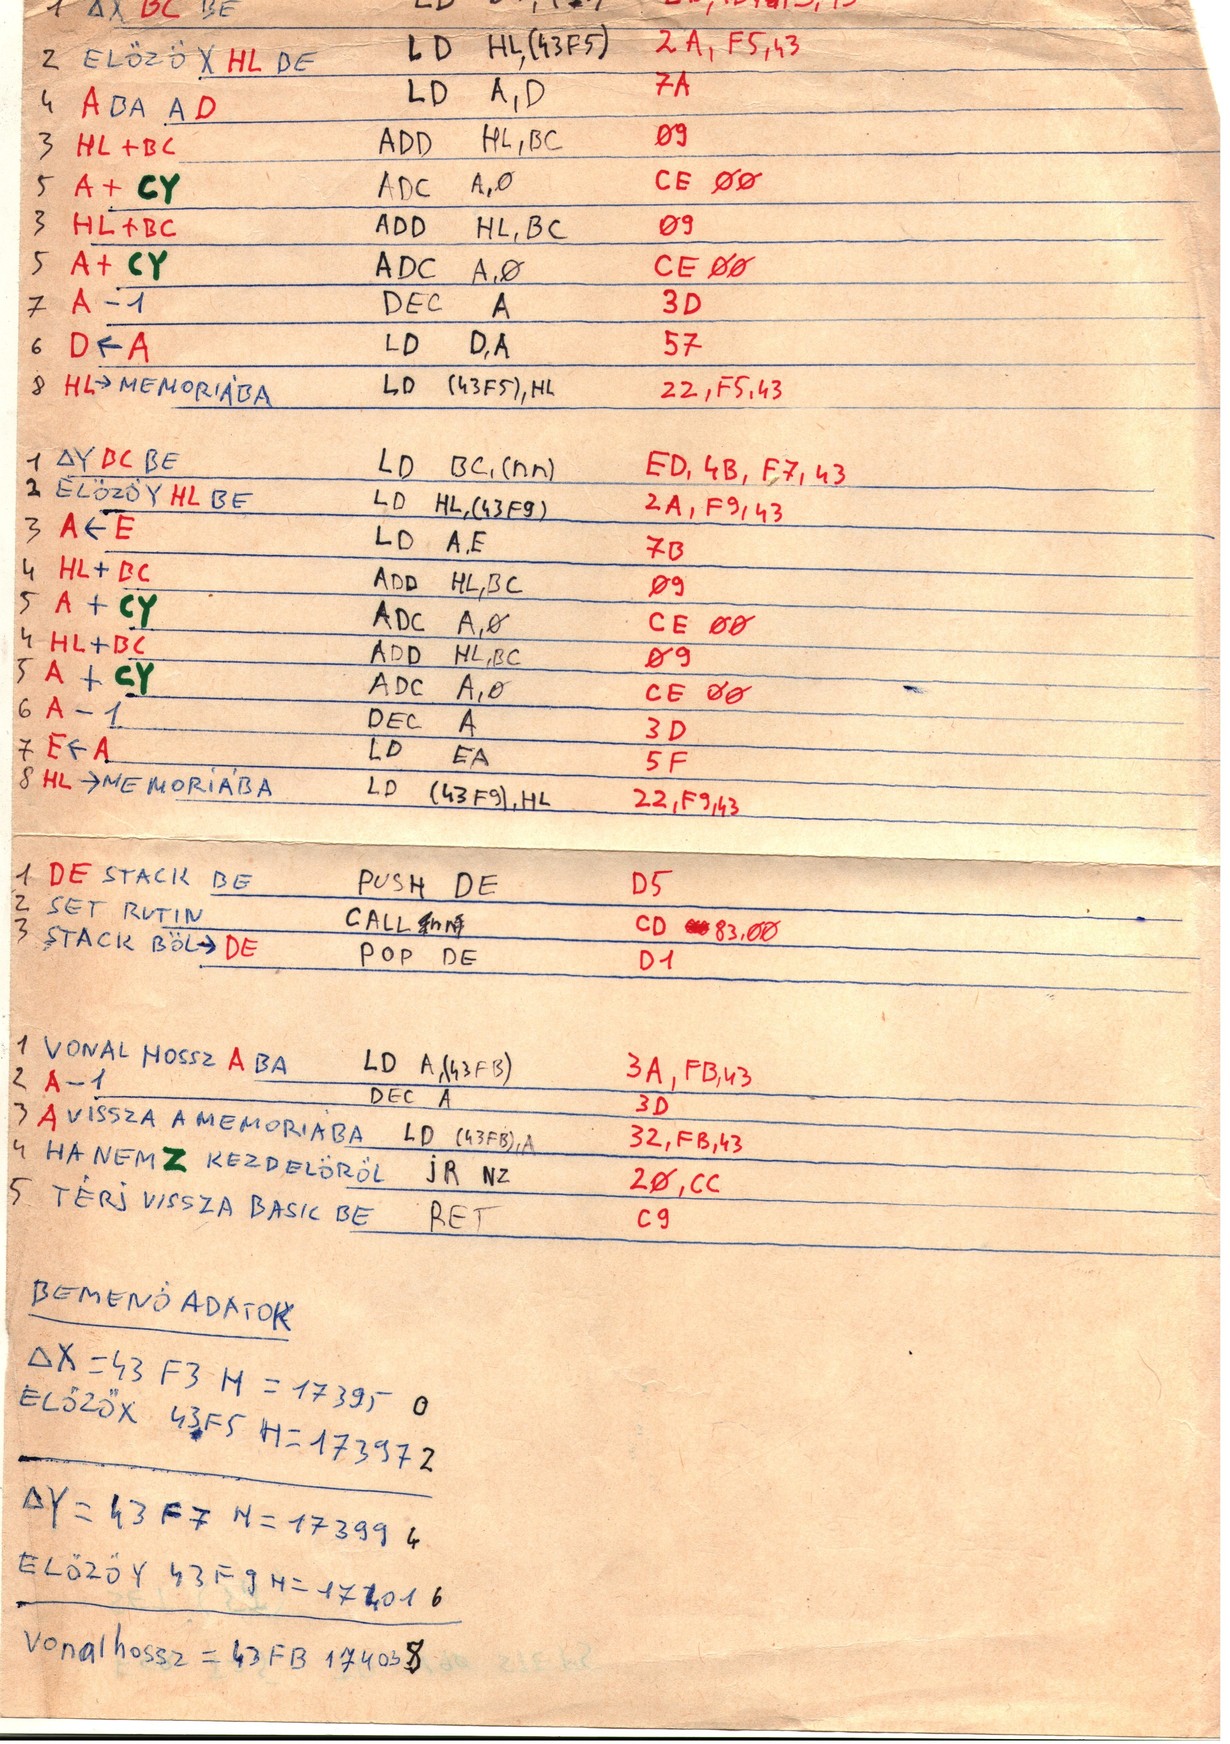 1 ΔX BC BE LD
2 ELŐZŐ X HL BE LD HL,(43F5) 2A, F5,43
4 A BA A D LD A,D 7A
3 HL+BC ADD HL,BC 09
5 A+ CY ADC A,0 CE 00
3 HL+BC ADD HL,BC 09
5 A+ CY ADC A,0 CE 00
7 A-1 DEC A 3D
6 D←A LD D,A 57
8 HL→MEMORIÁBA LD (43F5),HL 22,F5,43
1 ΔY BC BE LD BC,(nn) ED, 4B, F7,43
2 ELŐZŐY HL BE LD HL,(43F9) 2A, F9,43
3 A←E LD A,E 7B
4 HL+BC ADD HL,BC 09
5 A + CY ADC A,0 CE 00
4 HL+BC ADD HL,BC 09
5 A + CY ADC A,0 CE 00
6 A-1 DEC A 3D
7 E←A LD EA 5F
8 HL→MEMORIÁBA LD (43F9),HL 22,F9,43
1 DE STACK BE PUSH DE D5
2 SET RUTIN CALL CD 83,00
3 STACK BŐL→DE POP DE D1
1 VONAL HOSSZ A BA LD A,(43FB) 3A, FB,43
2 A-1 DEC A 3D
3 A VISSZA A MEMORIÁBA LD (43FB),A 32, FB,43
4 HA NEM Z KEZDELŐRŐL JR NZ 20, CC
5 TÉRJ VISSZA BASIC BE RET C9
BEMENŐ ADATOK
ΔX=43 F3 H = 17395 0
ELŐZŐX 43F5 H=17397 2
ΔY= 43 F7 H=17399 4
ELŐZŐY 43F9 H=17401 6
Vonalhossz = 43FB 17403 8